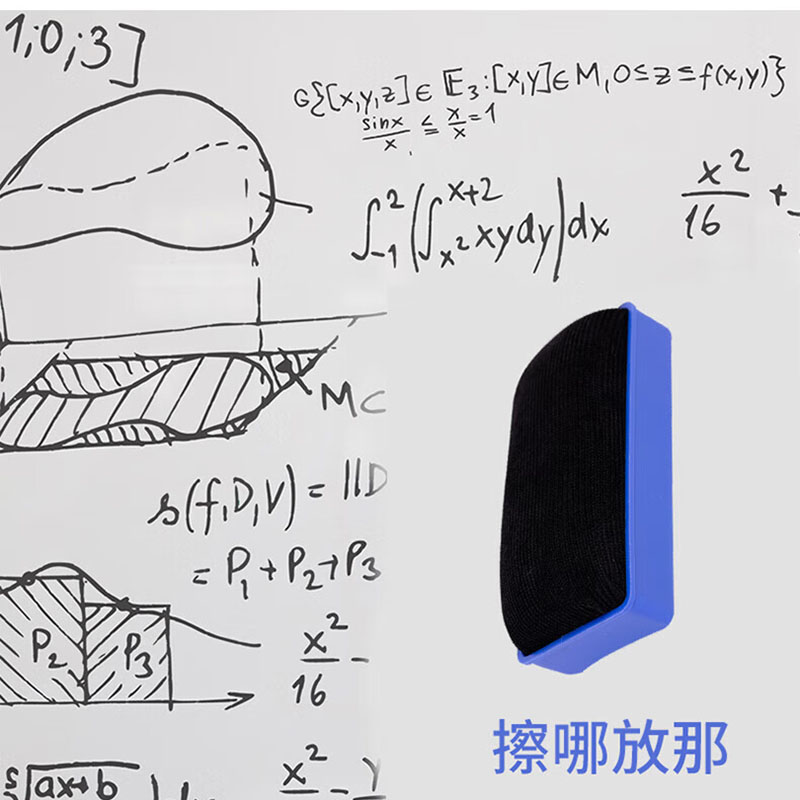 1;0;3]
G{[x,y,z]∈ E₃:[x,y]∈M,0≤z≤f(x,y)}
sinx/x ≤ x/x =1
∫₋₁²(∫ₓ²ˣ⁺² xydy)dx
x²/16 +
MC
s(f,D,V) = ||D
= P₁+P₂+P₃
P₂ P₃
x²/16 -
√ax+b
x² - y
擦哪放那